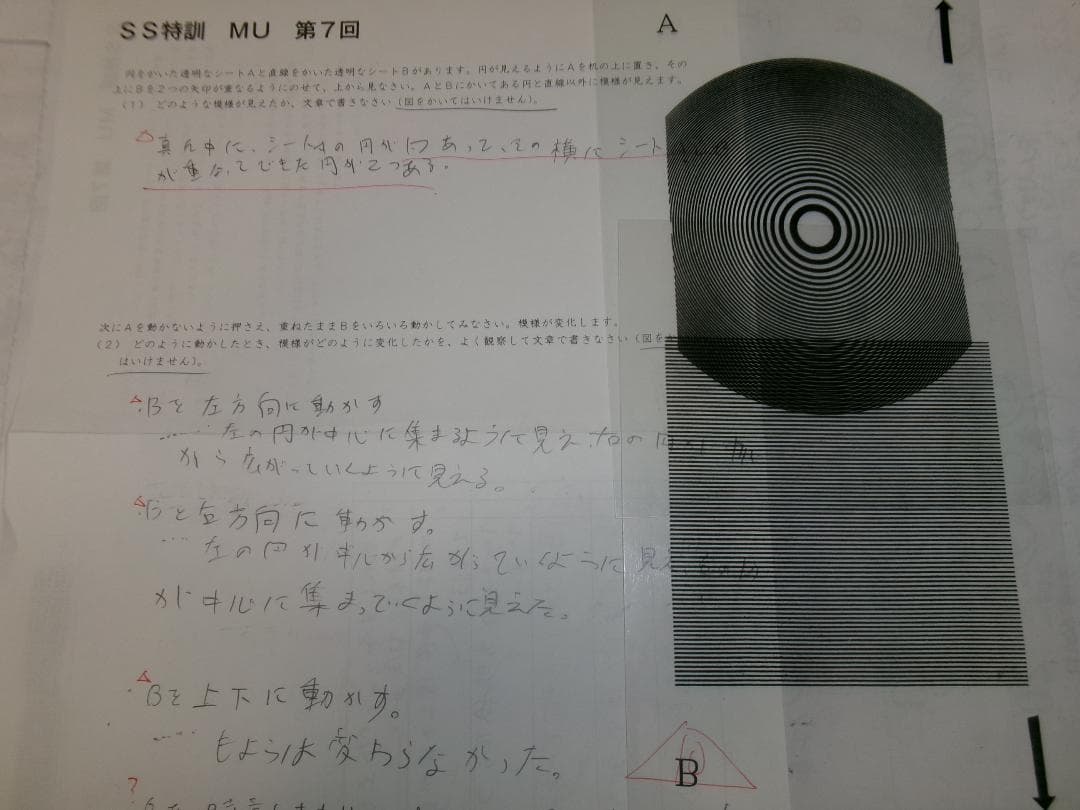 SS特訓 MU 第7回
A
円をかいた透明なシートAと直線をかいた透明なシートBがあります。円が見えるようにAを机の上に置き、その
上にBを2つの矢印が重なるようにのせて、上から見なさい。AとBにかいてある円と直線以外に模様が見えます。
(1) どのような模様が見えたか、文章で書きなさい(図をかいてはいけません)。
真ん中に、シートAの円が1つあって、その横にシート
が重なってできた円が2つある。
次にAを動かないように押さえ、重ねたままBをいろいろ動かしてみなさい。模様が変化します。
(2) どのように動かしたとき、模様がどのように変化したかを、よく観察して文章で書きなさい(図を
はいけません)。
・Bを左方向に動かす
左の円が中心に集まるように見え、右の
から広がっていくように見える。
・Bを右方向に動かす。
左の円が中心から広がっていくように見
が中心に集まっていくように見えた。
・Bを上下に動かす。
もようは変わらなかった。
?
B